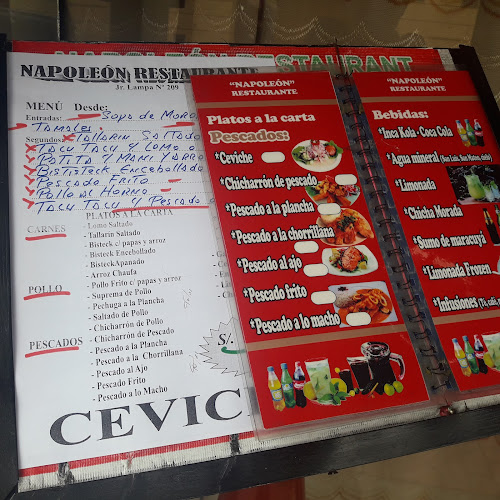 RESTAURANT
NAPOLEÓN RESTAURANTE
Jr. Lampa Nº 209
MENÚ Desde:
Entradas: Sopa de Moro
Tamales
Segundos: Tallarin Saltado
Tacu Tacu y Lomo
Bisteck Encebollado
Pescado Frito
Pollo al Horno
Tacu Tacu y Pescado
PLATOS A LA CARTA
CARNES
- Lomo Saltado
- Tallarin Saltado
- Bisteck c/ papas y arroz
- Bisteck Encebollado
- Bisteck Apanado
- Arroz Chaufa
POLLO
- Pollo Frito c/ papas y arroz
- Suprema de Pollo
- Pechuga a la Plancha
- Saltado de Pollo
- Chicharrón de Pollo
PESCADOS
- Chicharrón de Pescado
- Pescado a la Plancha
- Pescado a la Chorrillana
- Pescado al Ajo
- Pescado Frito
- Pescado a lo Macho
S/.
CEVIC
"NAPOLEÓN"
RESTAURANTE
Platos a la carta
Pescados:
*Ceviche
*Chicharrón de pescado
*Pescado a la plancha
*Pescado a la chorrillana
*Pescado al ajo
*Pescado frito
*Pescado a lo macho
"NAPOLEÓN"
RESTAURANTE
Bebidas:
*Inca Kola - Coca Cola
*Agua mineral (San Luis, San Mateo, cielo)
*Limonada
*Chicha Morada
*Sumo de maracuyá
*Limonada Frozen
*Infusiones